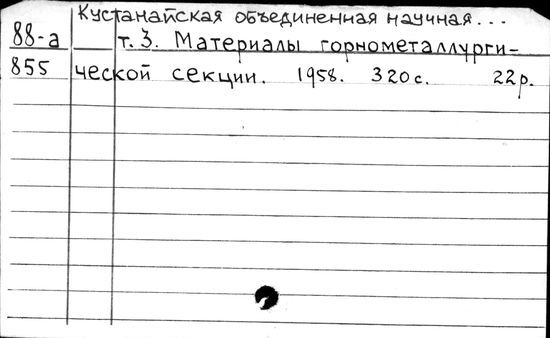 Кустанайская объединенная научная...
88-а т. 3. Материалы горнометаллурги-
855 ческой секции. 1958. 320с. 22р.